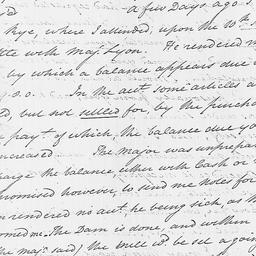 a few Days ago
Rye, where I attended, upon the 10th
with Majr Lyon. He rendered m
by which a balance appears due
In the act. some articles a
ed, but not settled for, by the purcha
paymt. of which, the balance due yo
increased The Major was unprepar
arge the balance, either with Cash or
promised however, to send me Notes for
rendered no act. he being sick, as
omed me. The Dam is done, and within
the majr. said) the mill wd. be set a going